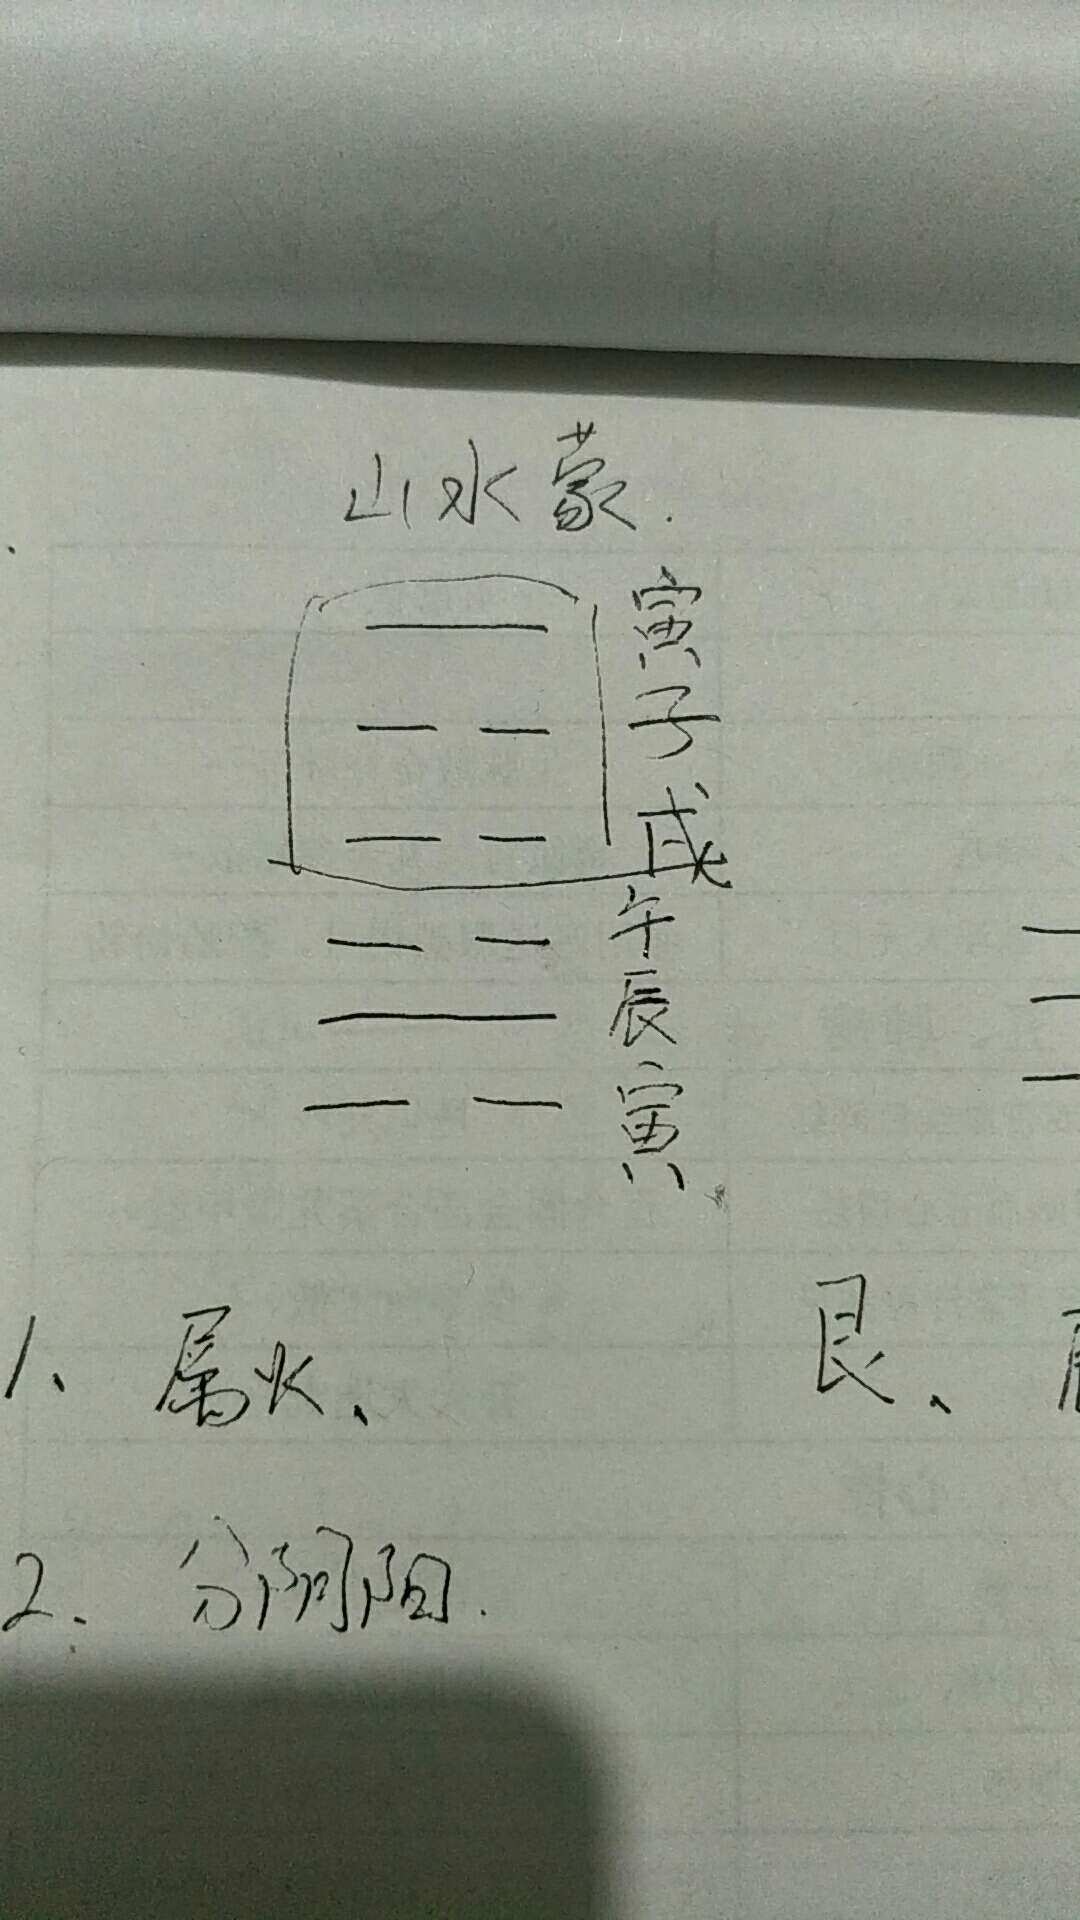 山水蒙.
寅
子
戌
午
辰
寅
1、属火、
艮、
2.分阴阳.